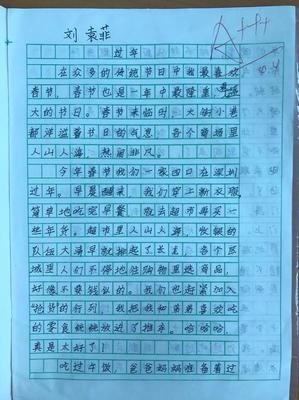 刘袁菲
过年
在众多的传统节日中我最喜欢
春节，春节也是一年中最隆重、盛
大的节日。春节来临时，大街小巷
都洋溢着节日的气息，各个商场里
人山人海，热闹非凡。
今年春节我们一家四口在深圳
过年。早晨醒来，我们穿上新衣服，
简单地吃完早餐，就去超市再买一
些年货。超市里人山人海，收银的
队伍大清早就排起了长龙，各个区
域里人们不停地往购物里选商品，
好像不要钱似的。我们也赶紧加入
“抢货”的行列，我把我和弟弟喜欢吃
的零食统统放进了推车。哈哈哈，
真是太好了！
吃过午饭，爸爸妈妈准备着过